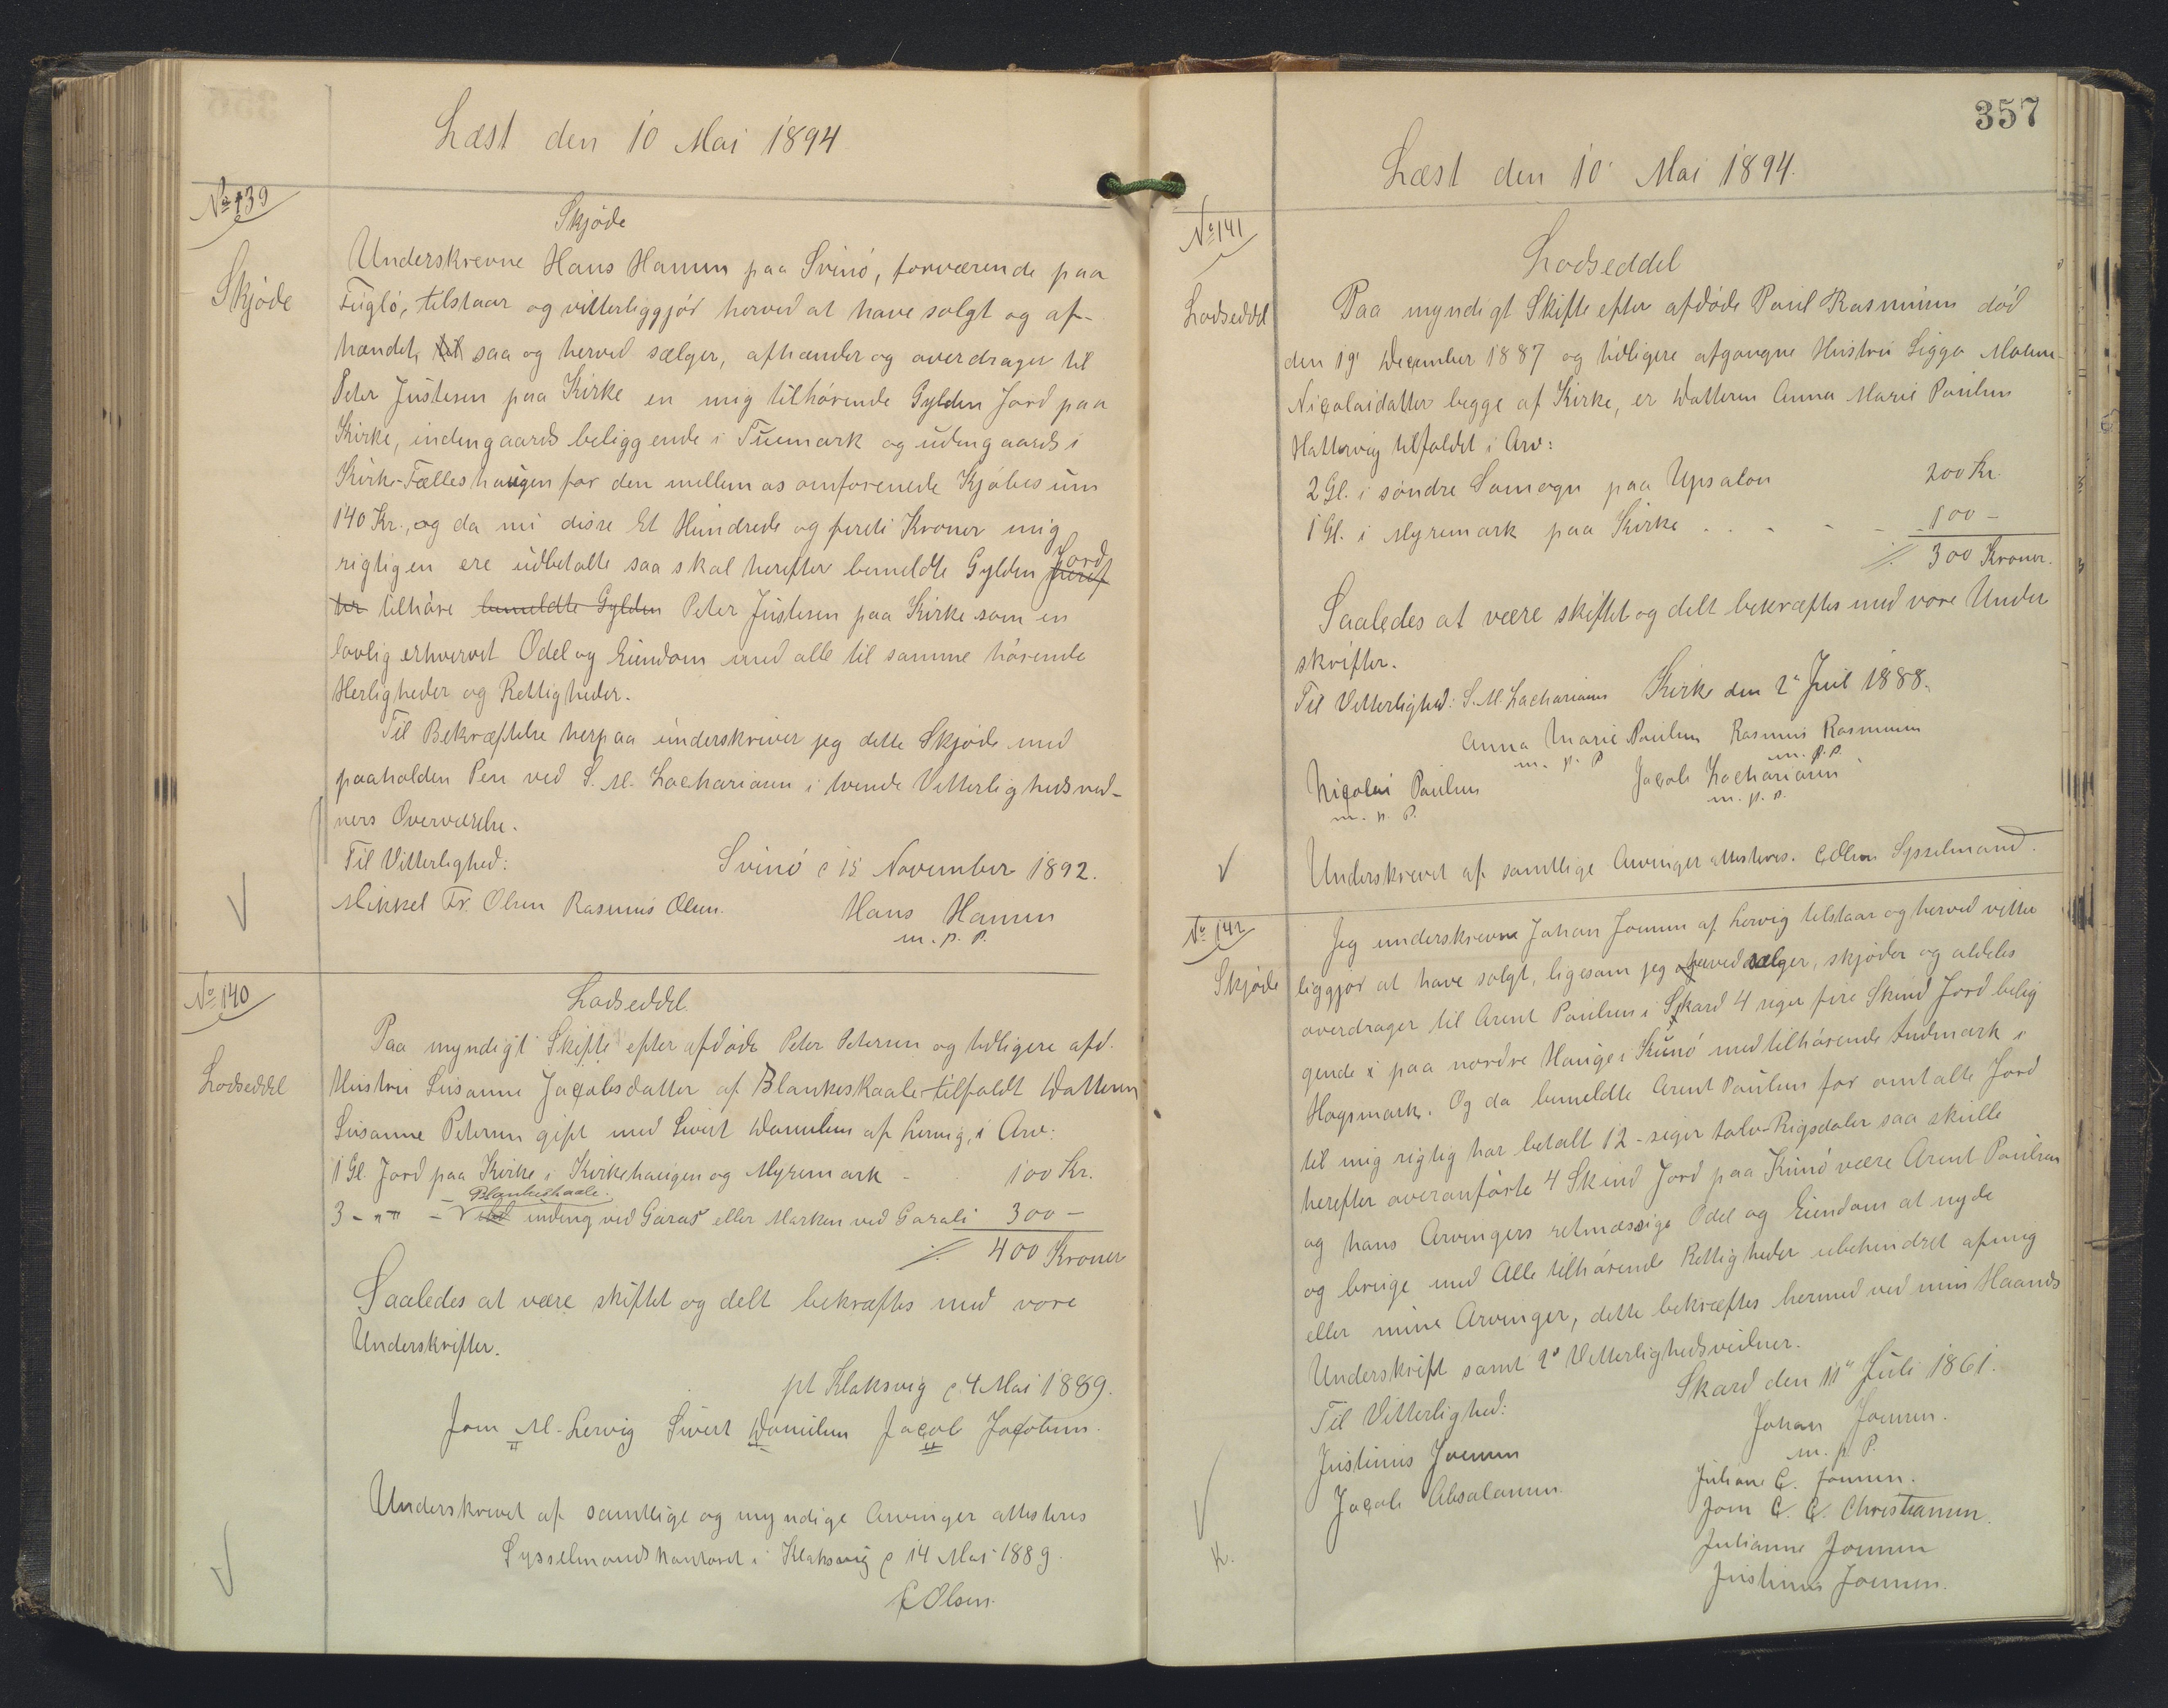 Læst den 10 Mai 1894
No 139
Skjøde
Skjøde
Underskrevne Hans Hansen paa Svinö, forværende paa
Fuglö, tilstaar og vitterliggjør herved at have solgt og af-
hændet, til saa og herved sælger, afhænder og overdrager til
Peter Justesen paa Kirke en mig tilhörende Gylden Jord paa
Kirke, indengaards beliggende i Tuemark og udengaards i
Kirke-Fælleshaugen for den mellem os omforenede Kjöbesum
140 Kr., og da nu disse Et Hundrede og fireti Kroner mig
rigtigen ere udbetalte saa skal herefter bemeldte Gylden Jord heref
ter tilhöre bemeldte Gylden Peter Justesen paa Kirke som en
lovlig erhvervet Odel og Eiendom med alle til samme hörende
Herligheder og Rettigheder.
Til Bekræftelse herpaa underskriver jeg dette Skjøde med
paaholden Pen ved S. M. Zachariasen i tvende Vitterlighedsvid-
ners Overværelse.
Til Vitterlighed:
Svinö d 15 November 1892.
Mikkel Fr. Olsen Rasmus Olsen.
Hans Hansen
m. p. P.
No 140
Lodseddel
Lodseddel.
Paa myndigt Skifte efter afdöde Peter Petersen og tidligere afd.
Hustru Susanne Jacobsdatter af Blankeskaale tilfaldt Datteren
Susanne Petersen gift med Sivert Danielsen af Lervig, i Arv:
1 Gl. Jord paa Kirke i Kirkehaugen og Myremark - 100 Kr.
Blankeskaale.
3 - " " - indeng ved Garas eller Marken ved Garali 300 -
./. 400 Kroner
Saaledes at være skiftet og delt bekræftes med vore
Underskrifter.
pt Klaksvig d. 4 Mai 1889.
Joen M. Lervig Sivert Danielsen Jacob Jacobsen.
Underskrevet af samtlige og myndige Arvinger attesteres
Sysselmandskontoret i Klaksvig d 14 Mai 1889.
C Olsen.
357
Læst den 10 Mai 1894.
No 141
Lodseddel
Lodseddel
Paa myndigt Skifte efter afdöde Poul Rasmussen död
den 19 December 1887 og tidligere afgangne Hustru Sigga Malene
Nicolaidatter begge af Kirke, er Datteren Anna Marie Poulsen
Hattervig tilfaldet i Arv:
2 Gl. i söndre Somogn paa Upsalon 200 Kr.
1 Gl. i Myremark paa Kirke . . - - - 100 -
./. 300 Kroner.
Saaledes at være skiftet og delt bekræftes med vore Under
skrifter.
Til Vitterlighed: S. M. Zachariasen Kirke den 2 Juli 1888.
Anna Marie Poulsen Rasmus Rasmussen
m. p. P m. p. P.
Nicolai Poulsen Jacob Zachariasen
m. p. P. m. p. P.
Underskrevet af samtlige Arvinger attesteres. C Olsen Sysselmand.
No 142
Skjøde
Jeg underskrevne Johan Joensen af Lervig tilstaar og herved vitter
liggjør at have solgt, ligesom jeg og herved sælger, skjöder og aldeles
overdrager til Arent Poulsen i Skard 4 siger fire Skind Jord belig
gende i paa nordre Hauge i Kunö med tilhörende Indmark i
Hagsmark. Og da bemeldte Arent Poulsen for omtalte Jord
til mig rigtig har betalt 12 - siger tolv - Rigsdaler saa skulle
herefter overanförte 4 Skind Jord paa Kunö være Arent Poulsen
og hans Arvingers retmæssige Odel og Eiendom at nyde
og bruge med Alle tilhörende Rettigheder ubehindret af mig
eller mine Arvinger, dette bekræftes hermed ved min Haands
Underskrift samt 2 Vitterlighedsvidner.
Skard den 11 Juli 1861.
Til Vitterlighed:
Johan Joensen.
m. p. P.
Justinus Joensen
Juliane C. Joensen.
Jacob Absalonsen.
Joen C. C. Christiansen.
Julianne Joensen
Justinus Joensen.
K.